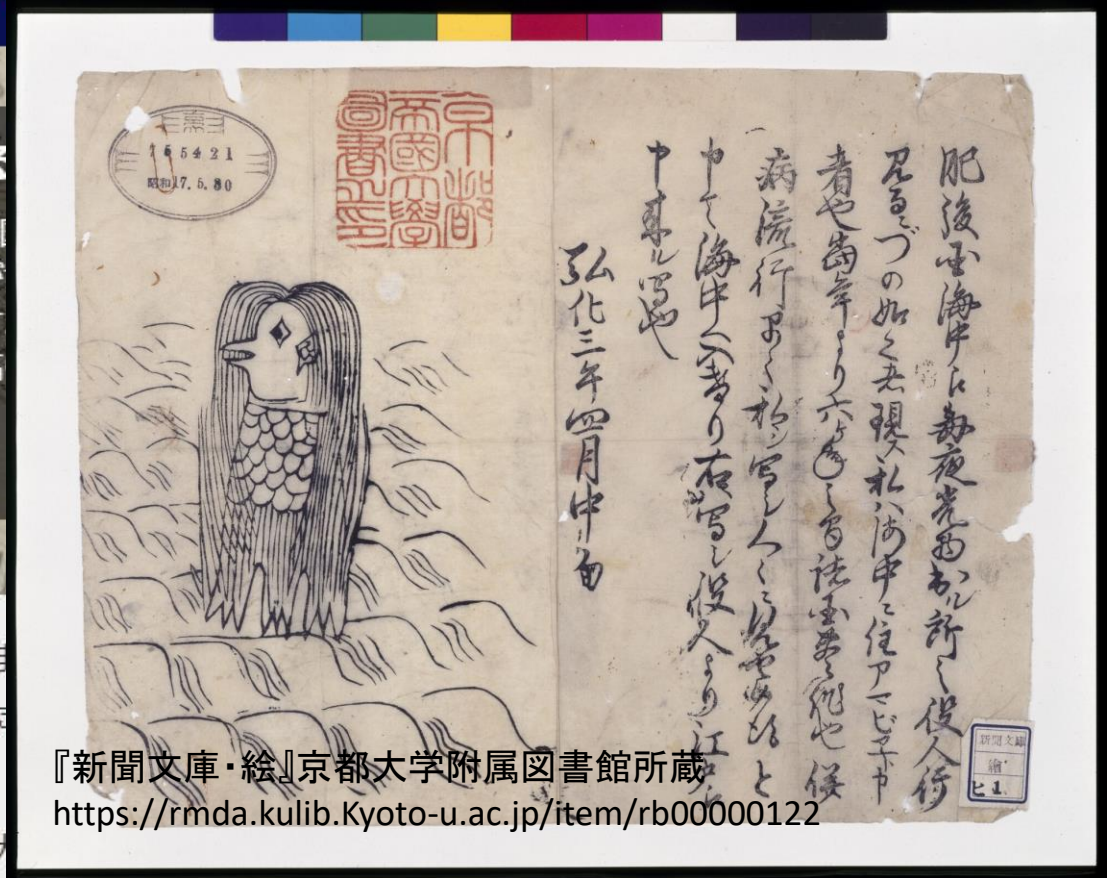 肥後国海中江毎夜光物出ル所之役人行
見るニづの如く者現ス私ハ海中ニ住アマビヱト申
者也当年より六ヶ年之間諸国豊作也併
病流行早々私シ写シ人々ニ見せ候得と
申て海中へ入けり右写シ役人より江戸江
申来ル写也
弘化三年四月中旬
京都
帝國大學
圖書之印
昭和17.5.30
新聞文庫
繪
ヒ1
『新聞文庫・絵』京都大学附属図書館所蔵
https://rmda.kulib.Kyoto-u.ac.jp/item/rb00000122